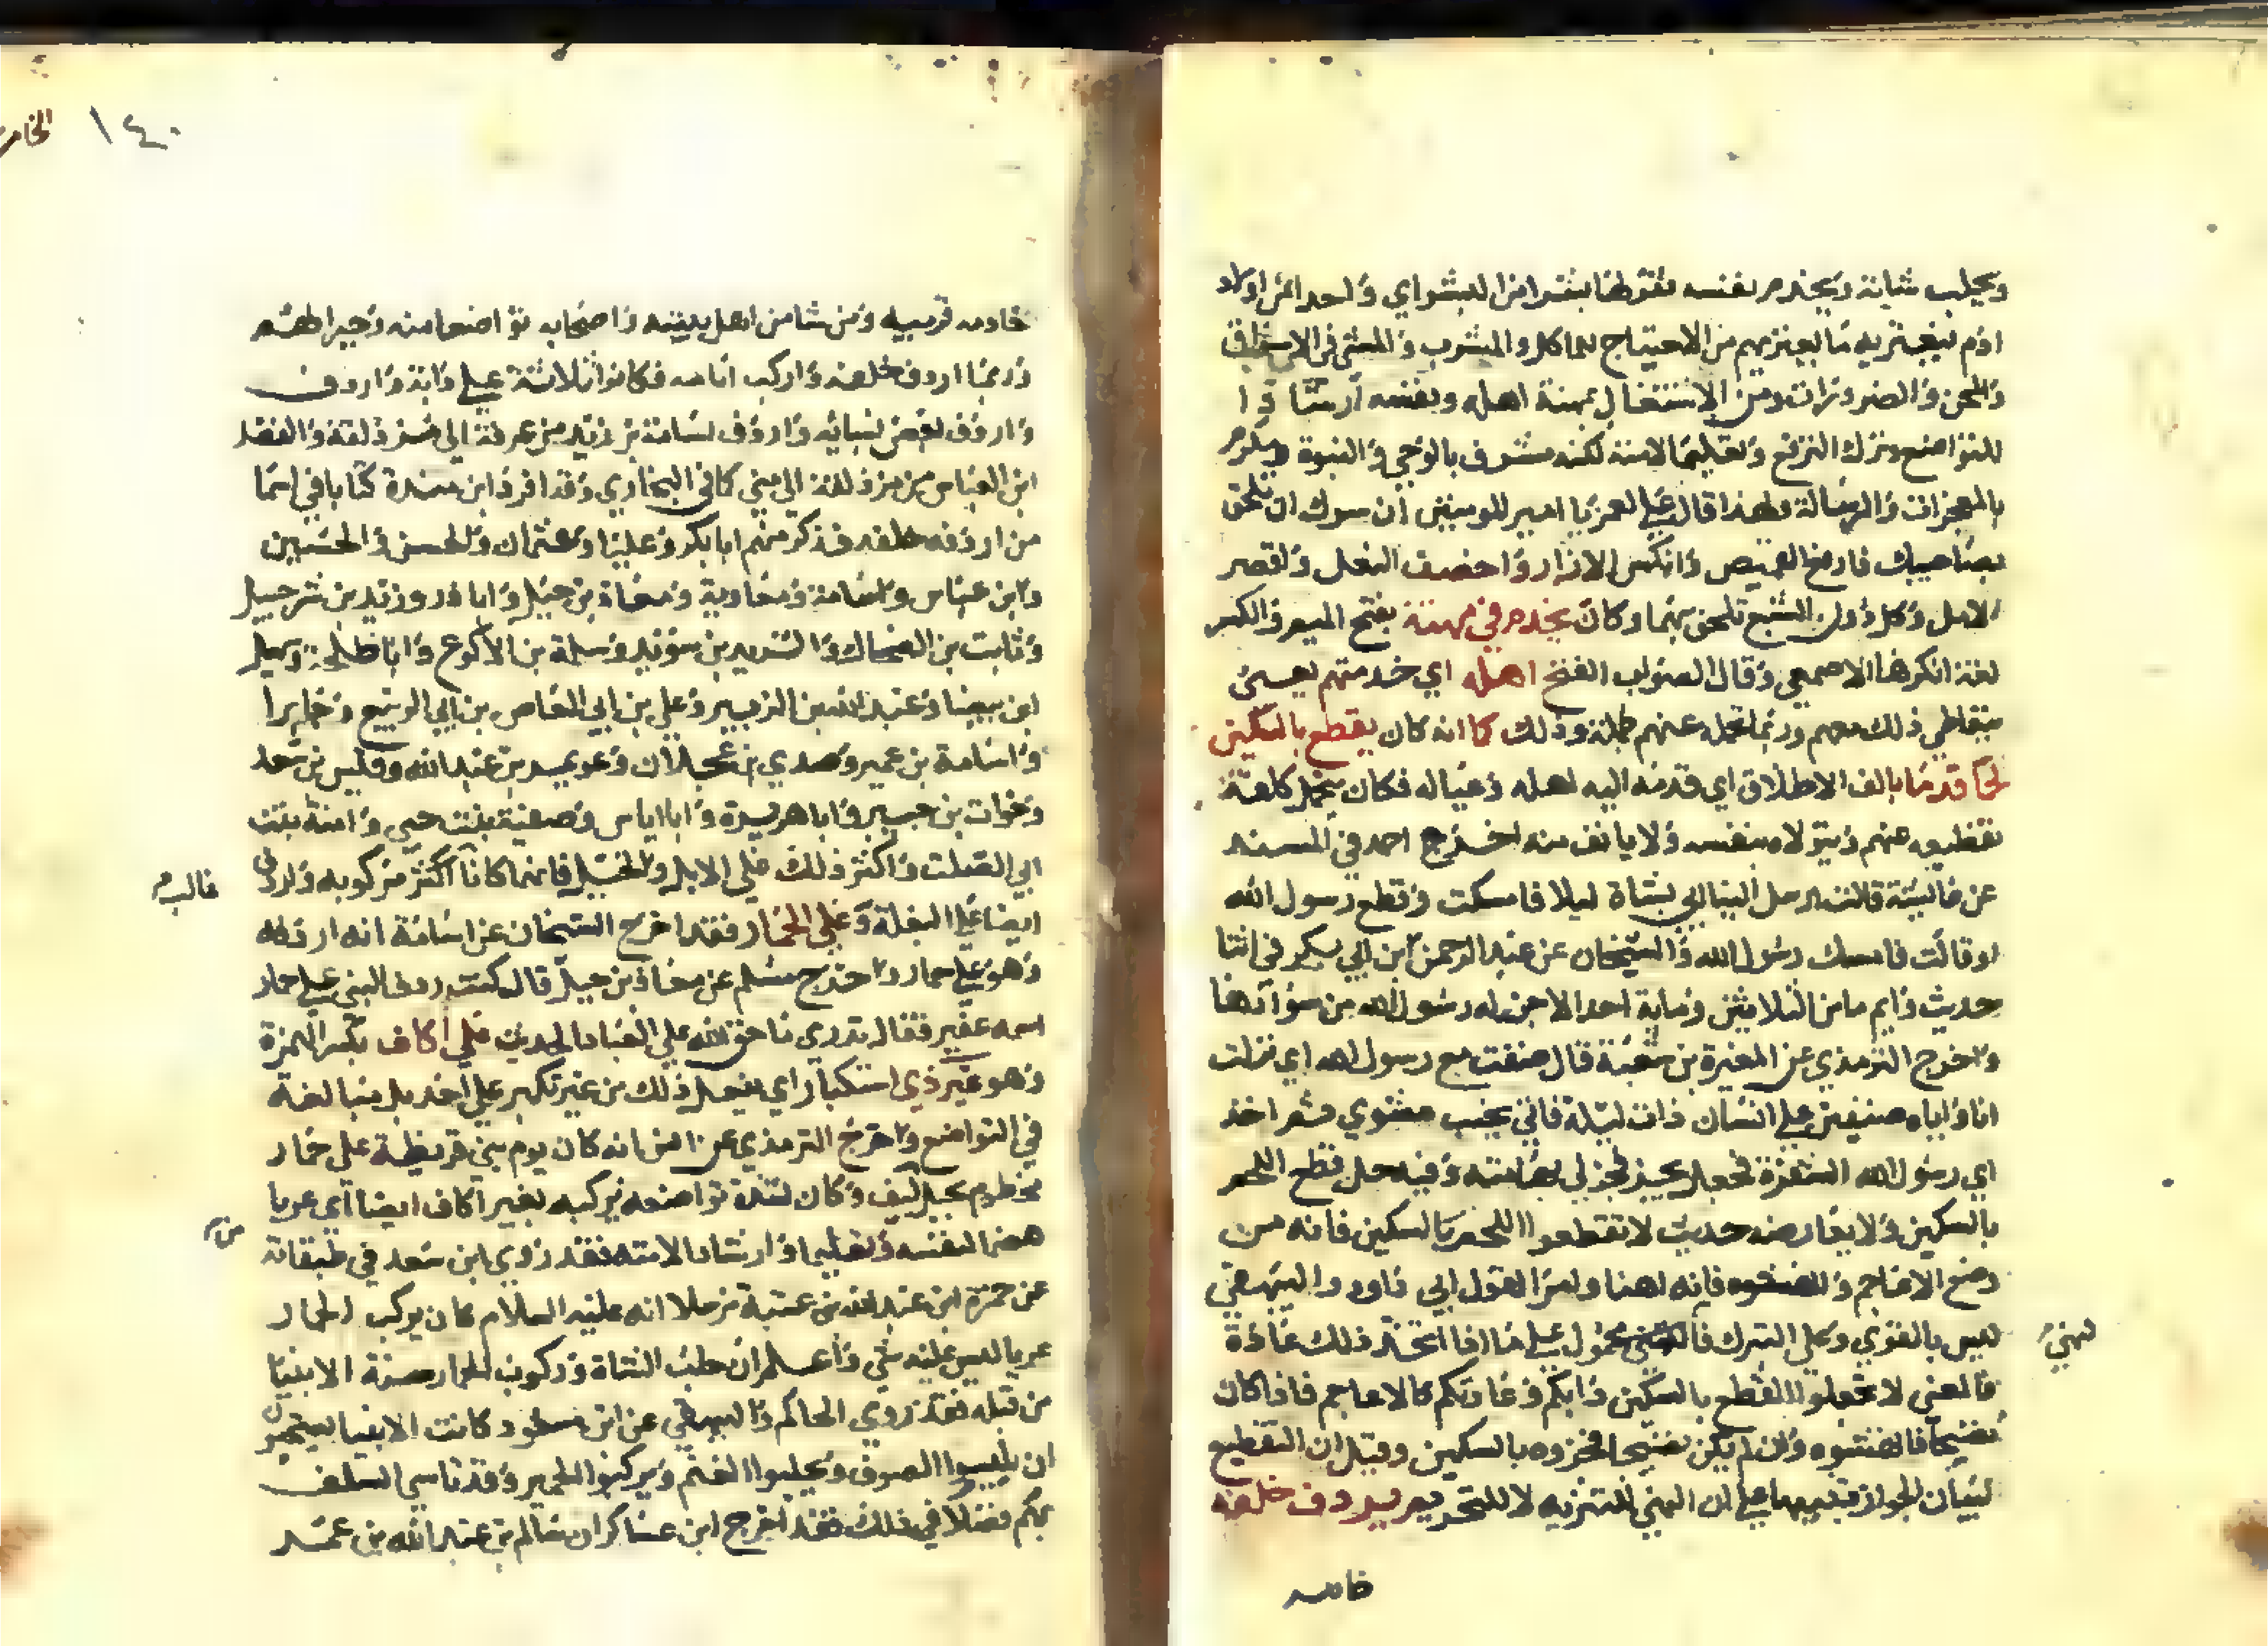 ويحلب شاته ويخدم نفسه بشرا من البشر اي واحد من اولاد
ادم يعتريه ما يعتريهم من الاحتياج للماكل والمشرب والمشي في الاسواق
والمحن والضرورات ومن الاشتغال بمهنة اهله ونفسه ارشادا
للتواضع وترك الترفع وتعليما لامته لكنه مشرف بالوحي والنبوة ومكرم
بالمعجزات والرسالة ولهذا قال علي لعمر يا امير المومنين ان سرك ان تلحق
بصاحبيك فارقع القميص وانكس الازار واخصف النعل واقصر
الامل وكل دون الشبع تلحق بهما وكان يخدم في مهنة بفتح الميم والكسر
لغة انكرها الاصمعي وقال الصواب الفتح اهله اي خدمتهم يعني
يتعاطى ذلك معهم وربما تحمله عنهم جملة وذلك كما انه كان يقطع بالسكين
لحما قدما بالف الاطلاق اي قدمه اليه اهله وعياله فكان يتحمل كلفة
تقطيعه عنهم ويتولاه بنفسه ولا يانف منه اخرج احمد في المسند
عن عائشة قالت ارسل الينا ابي بشاة ليلا فامسكت وقطع رسول الله
او قالت فامسك رسول الله والشيخان عن عبد الرحمن ابن ابي بكر في اثنا
حديث وايم ما من الثلاثين وماية احد الا حز له رسول الله من سوادها
واخرج الترمذي عن المغيرة بن شعبة قال ضفت مع رسول الله اي نزلت
انا واياه ضيفين على انسان ذات ليلة فاتي بجنب مشوي ثم اخذ
اي رسول الله الشفرة فجعل يحز فحز لي بها منه وفيه حل قطع اللحم
بالسكين ولا يعارضه حديث لا تقطعوا اللحم بالسكين فانه من
وضع الاعاجم وانهشوه فانه اهنا وامرا لقول ابي داود والبيهقي
ليس بالقوي وعلى التنزل فالنهي محمول على ما اذا اتخذ ذلك عادة
فالمعنى لا تجعلوا القطع بالسكين دابكم وعادتكم كالاعاجم فاذا كان
نضيجا فانهشوه وان لم يكن نضيجا فحزوه بالسكين وقيل ان التقطيع
لبيان الجواز تنبيها على ان النهي للتنزيه لا للتحريم يردف خلفه
خادمه
النهي
١٤٠
خادمه قريبه ومن شا من اهل بيته واصحابه تواضعا منه وجبرا لهم
وربما اردف خلفه واركب امامه فكانوا ثلاثة على دابة واردف
واردف بعض نسائه واردف اسامة بن زيد من عرفة الى مزدلفة والفضل
ابن العباس من مزدلفة الى منى كما في البخاري وقد افرد ابن مندة كتابا في اسما
من اردفه خلفه فذكر منهم ابا بكر وعليا وعثمان والحسن والحسين
وابن عباس واسامة ومعاوية ومعاذ بن جبل وابا ذر وزيد بن شرحبيل
وثابت بن الضحاك والشريد بن سويد وسلمة بن الاكوع وابا طلحة وسهيل
ابن بيضا وعبد الله بن الزبير وعلي بن ابي العاص بن ابي الربيع وجابرا
واسامة بن عمير وصدي بن عجلان وعويمر بن عبد الله وقيس بن سعد
وخوات بن جبير وابا هريرة وابا اياس وصفية بنت حيي وامنة بنت
ابي الصلت واكثر ذلك على الابل والخيل فانهما كانا اكثر مركوبه واردف
غالب
ايضا على البغلة وعلى الحمار فقد اخرج الشيخان عن اسامة انه اردفه
وهو على حمار واخرج مسلم عن معاذ بن جبل قال كنت ردف النبي على حمار
اسمه عفير فقال تدري ما حق الله على العباد الحديث على اكاف بكسر الهمزة
وهو غير ذي استكبار اي يفعل ذلك من غير تكبر على احد بل مبالغة
في التواضع واخرج الترمذي عن انس انه كان يوم بني قريظة على حمار
مخطوم بحبل ليف وكان لشدة تواضعه يركبه بغير اكاف ايضا اي عريا
من
هضما لنفسه وتعليما وارشادا لامته فقد روى ابن سعد في طبقاته
عن حمزة ابن عبد الله بن عتبة مرسلا انه عليه السلام كان يركب الحمار
عريا ليس عليه شي واعلم ان حلب الشاة وركوب الحمار سنة الانبيا
من قبله فقد روى الحاكم والبيهقي عن ابن مسعود كانت الانبيا يستحبون
ان يلبسوا الصوف ويحلبوا الغنم ويركبوا الحمير وقد تاسى السلف
بهم فضلا في ذلك فقد اخرج ابن عساكر ان سالم بن عبد الله بن عمر